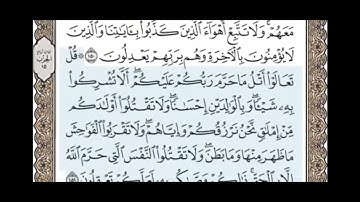 مَعَهُمْ ۚ وَلَا تَتَّبِعْ أَهْوَاءَ الَّذِينَ كَذَّبُوا بِـَٔايَـٰتِنَا وَالَّذِينَ
لَا يُؤْمِنُونَ بِالْـَٔاخِرَةِ وَهُم بِرَبِّهِمْ يَعْدِلُونَ ۝١٥٠ ۞ قُلْ
تَعَالَوْا أَتْلُ مَا حَرَّمَ رَبُّكُمْ عَلَيْكُمْ ۖ أَلَّا تُشْرِكُوا
بِهِۦ شَيْـًٔا ۖ وَبِالْوَالِدَيْنِ إِحْسَـٰنًا ۖ وَلَا تَقْتُلُوا أَوْلَـٰدَكُم
مِّنْ إِمْلَـٰقٍ ۖ نَّحْنُ نَرْزُقُكُمْ وَإِيَّاهُمْ ۖ وَلَا تَقْرَبُوا الْفَوَٰحِشَ
مَا ظَهَرَ مِنْهَا وَمَا بَطَنَ ۖ وَلَا تَقْتُلُوا النَّفْسَ الَّتِي حَرَّمَ اللَّهُ
إِلَّا بِالْحَقِّ ۚ ذَٰلِكُمْ وَصَّىٰكُم بِهِۦ لَعَلَّكُمْ تَعْقِلُونَ